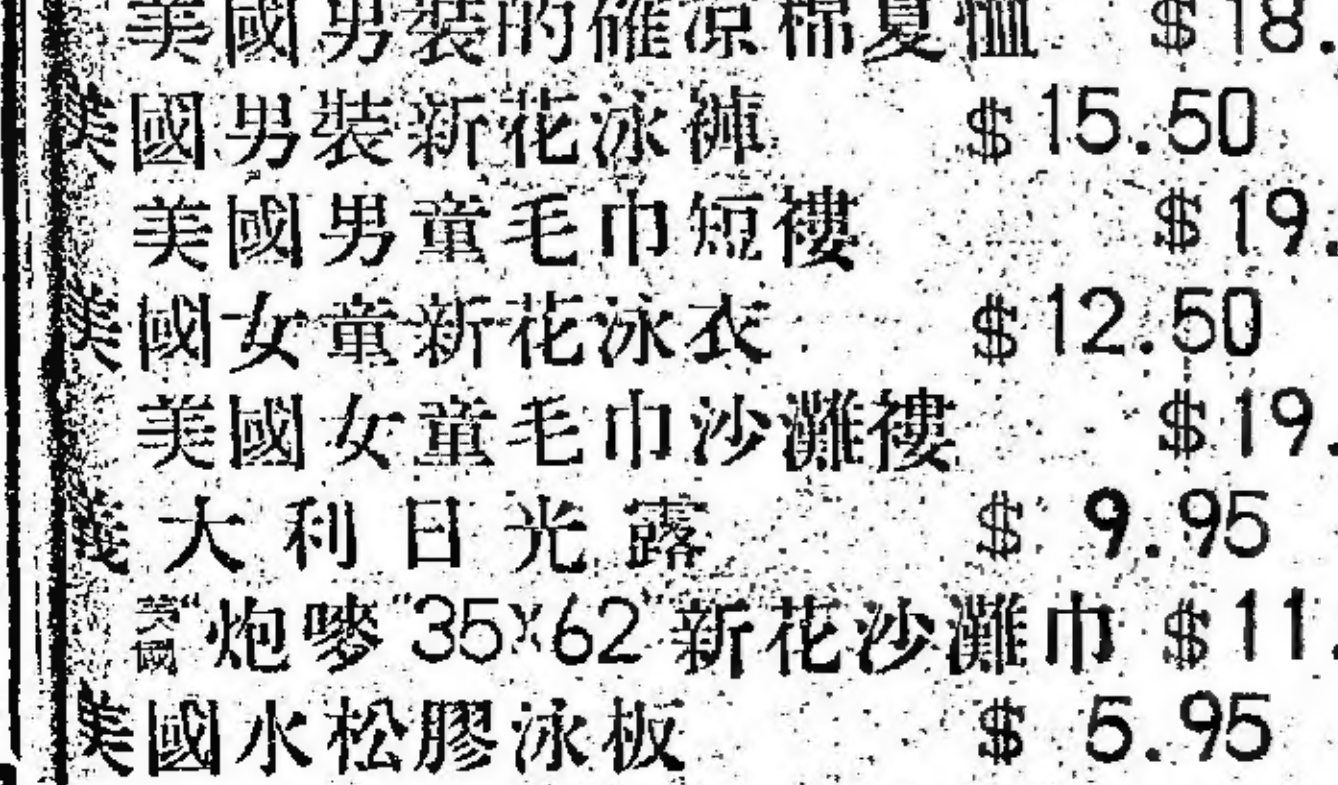 美國男裝的確涼棉夏恤 $18.
美國男裝新花泳褲 $15.50
美國男童毛巾短褸 $19.
美國女童新花泳衣 $12.50
美國女童毛巾沙灘褸 $19.
義大利日光露 $9.95
美國“炮嘜”35"X62"新花沙灘巾 $11.
美國水松膠泳板 $5.95